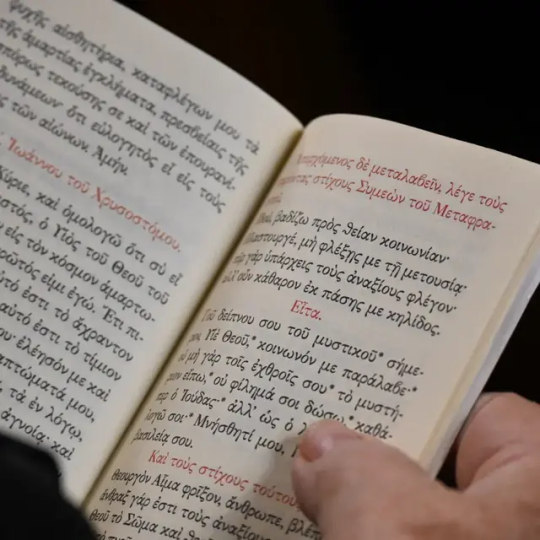 ψυχῆς αἰσθητήρια, καταφλέγων μου τὰ
τῆς ἁμαρτίας ἐγκλήματα, πρεσβείαις τῆς
ἀπόρως τεκούσης σε καὶ τῶν ἐπουρανί-
δυνάμεων· ὅτι εὐλογητὸς εἶ εἰς τοὺς
τῶν αἰώνων. Ἀμήν.
Ἰωάννου τοῦ Χρυσοστόμου.
Κύριε, καὶ ὁμολογῶ ὅτι σὺ εἶ
ὁ Υἱὸς τοῦ Θεοῦ τοῦ
εἰς τὸν κόσμον ἁμαρτω-
πρῶτός εἰμι ἐγώ. Ἔτι πι-
αὐτό ἐστι τὸ ἄχραντον
τοῦτο αὐτό ἐστι τὸ τίμιον
ἐλέησόν με καὶ
μου,
τὰ ἐν λόγῳ,
ἀγνοίᾳ· καὶ
δὲ μεταλαβεῖν, λέγε τοὺς
στίχους Συμεὼν τοῦ Μεταφρα-
βαδίζω πρὸς θείαν κοινωνίαν·
μὴ φλέξῃς με τῇ μετουσίᾳ·
γὰρ ὑπάρχεις τοὺς ἀναξίους φλέγον·
ἀλλ’ οὖν κάθαρον ἐκ πάσης με κηλίδος.
Εἶτα.
Τοῦ δείπνου σου τοῦ μυστικοῦ* σήμε-
ρον, Υἱὲ Θεοῦ,* κοινωνόν με παράλαβε·*
οὐ μὴ γὰρ τοῖς ἐχθροῖς σου* τὸ μυστή-
εἴπω,* οὐ φίλημά σοι δώσω,* καθά-
ὁ Ἰούδας·* ἀλλ’ ὡς ὁ
σοι·* Μνήσθητί μου,
βασιλείᾳ σου.
Καὶ τοὺς στίχους τούτους
Θεουργὸν Αἷμα φρῖξον, ἄνθρωπε,
ἄνθραξ γάρ ἐστι τοὺς ἀναξίους
Θεοῦ τὸ Σῶμα καὶ